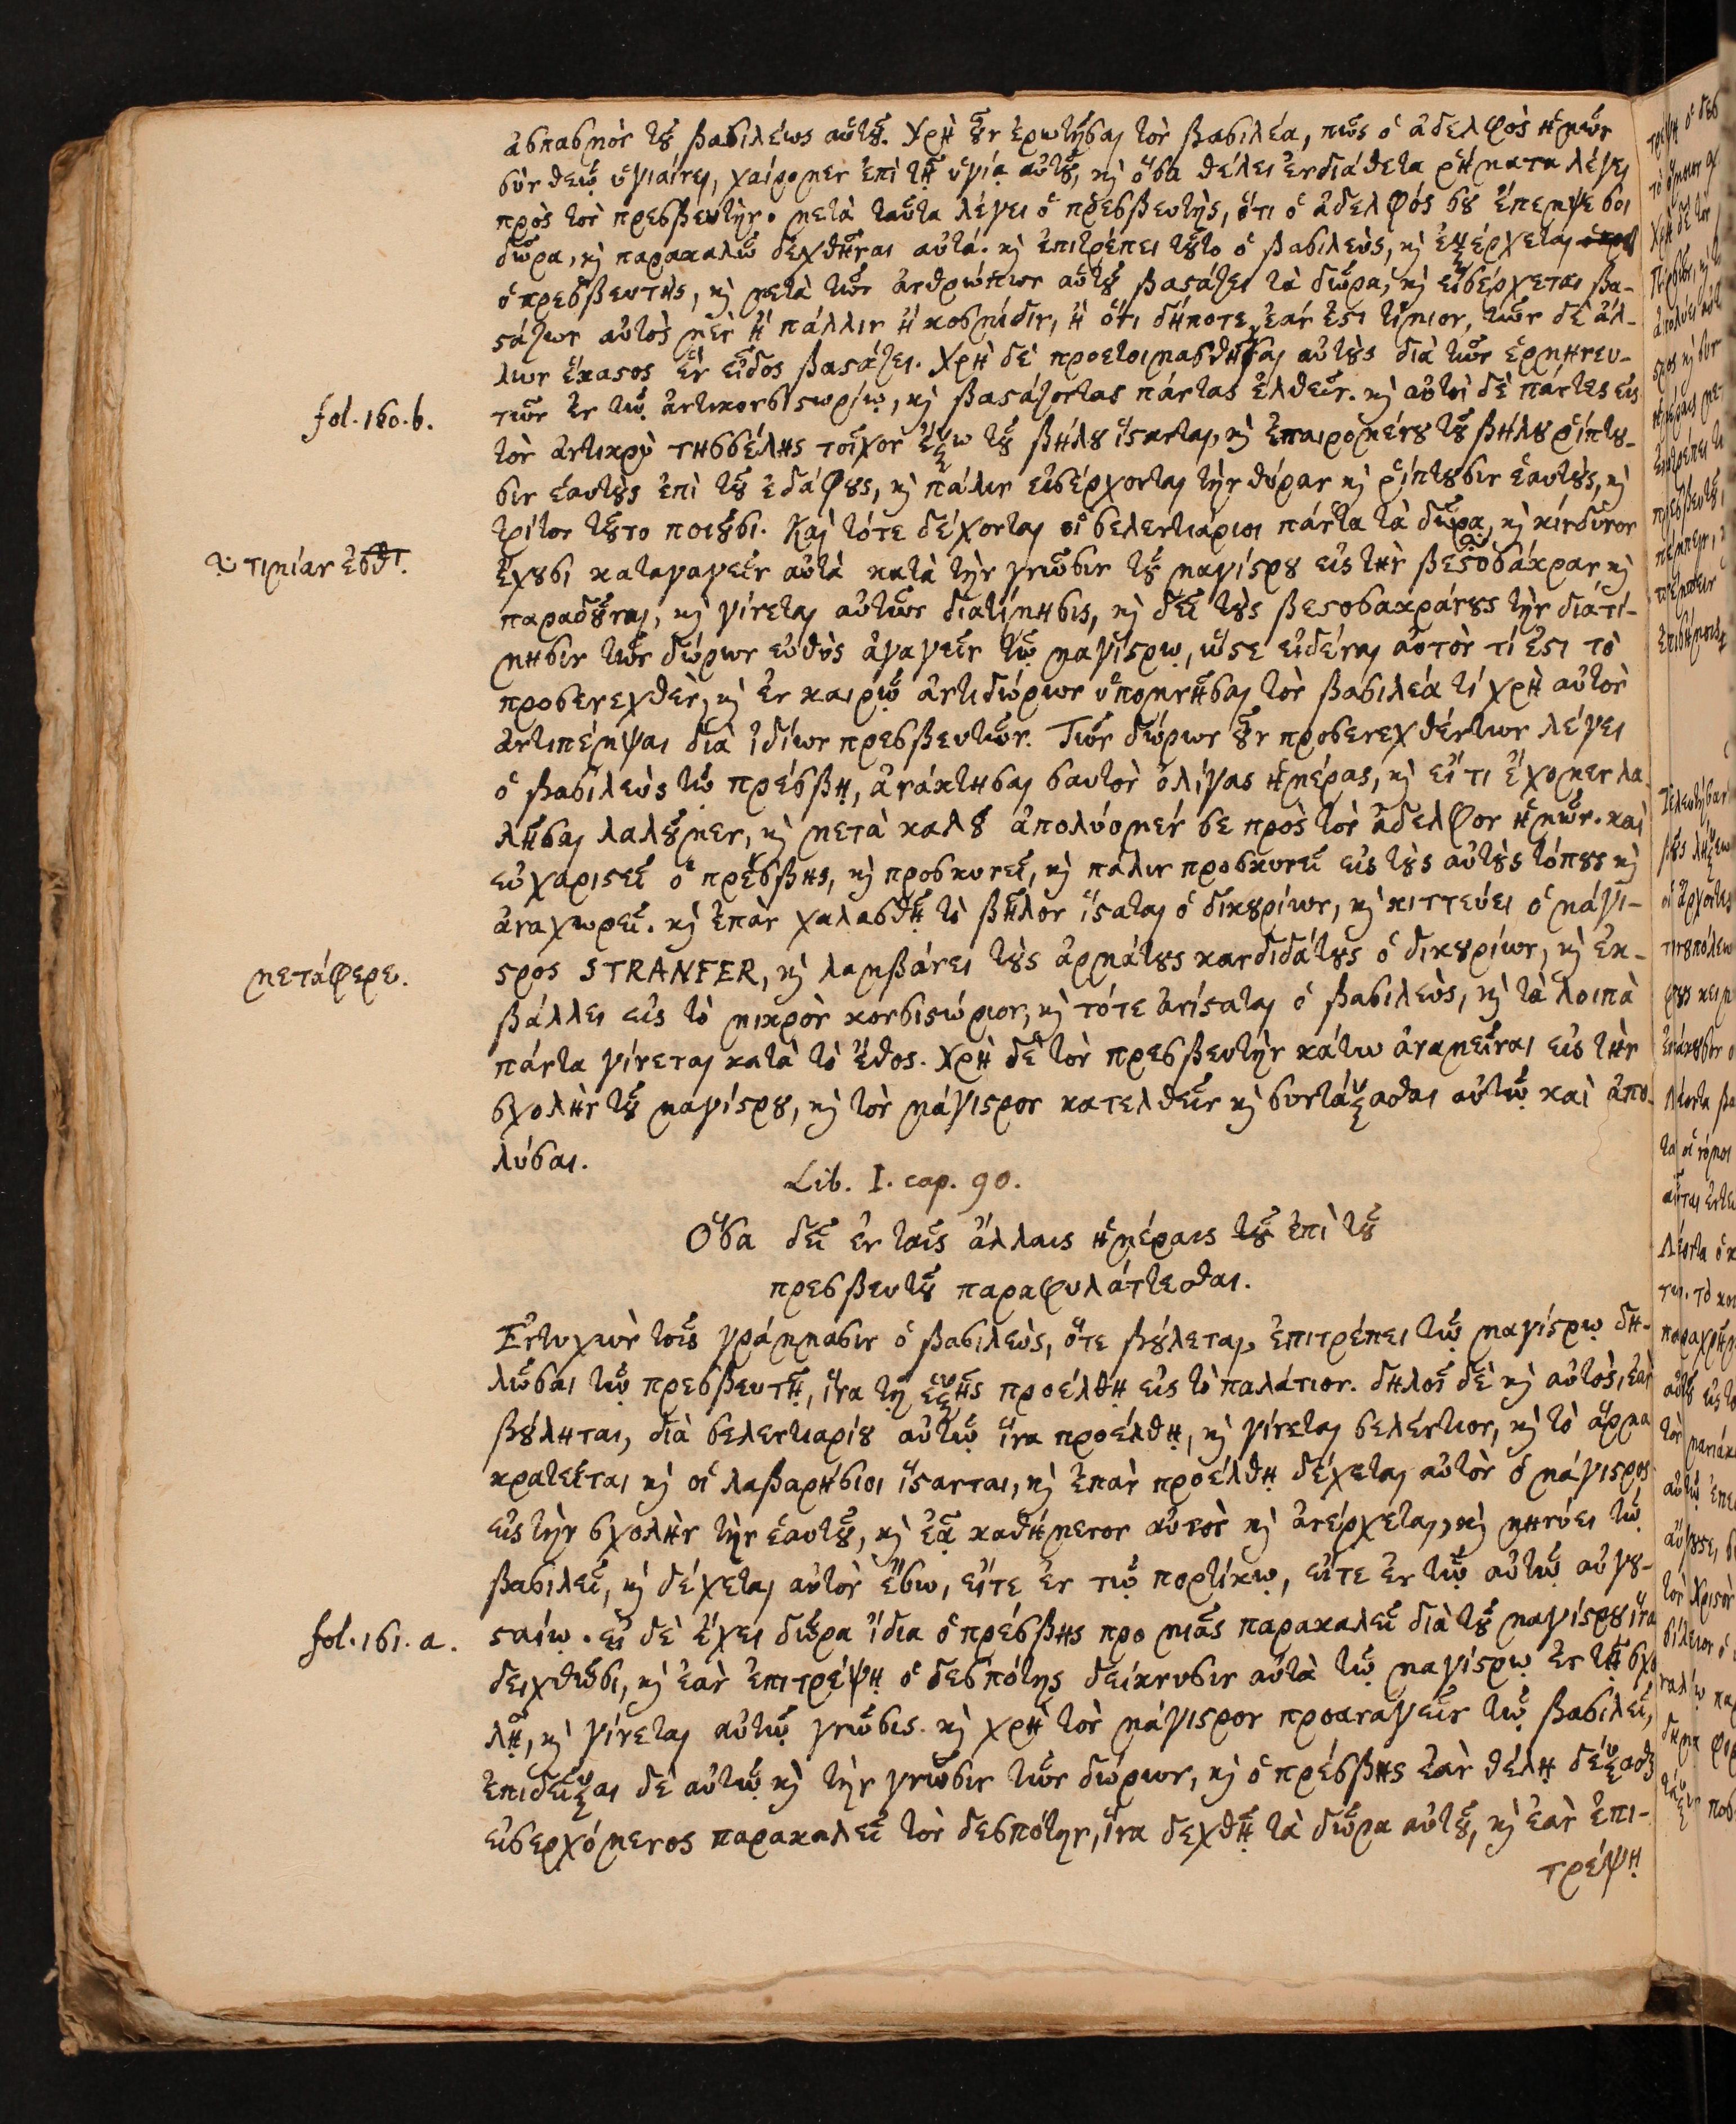 ἀσπασμὸν τȣ͂ βασιλέως αὐτȣ͂. Χρὴ ȣ͂ν ἐρωτῆσαι τὸν βασιλέα, πῶς ὁ ἀδελφὸς ἡμῶν
σὺν θεῷ ὑγιαίνει, χαίρομεν ἐπὶ τῇ ὑγίᾳ αὐτȣ͂, ϗ ὅσα θέλει ἐνδιάθετα ῥήματα λέγει
πρὸς τὸν πρεσβευτήν. μετὰ ταῦτα λέγει ὁ πρεσβευτὴς, ὅτι ὁ ἀδελφός σȣ ἔπεμψέ σοι
δῶρα, ϗ παρακαλῶ δεχθῆναι αὐτά. ϗ ἐπιτρέπει τȣ͂το ὁ βασιλεὺς, ϗ ἐξέρχεται
ὁ πρεσβευτὴς, ϗ μετὰ τῶν ἀνθρώπων αὐτȣ͂ βαϛάζει τὰ δῶρα, ϗ εἰσέρχεται βα-
ϛάζων αὐτὸς μὲν ἢ πάλλιν ἢ κοσμίδιν, ἢ ὅτι δήποτε, ἐάν ἐϛι τίμιον, τῶν δὲ ἄλ-
λων ἕκαϛος ἓν εἶδος βαϛάζει. Χρὴ δὲ προετοιμασθῆναι αὐτȣ̀ς διὰ τῶν ἑρμηνευ-
fol. 160. b.
τῶν ἐν τῷ ἀντικονσιϛωρίῳ, ϗ βαϛάζοντας πάντας ἐλθεῖν. ϗ αὐτοὶ δὲ πάντες εἰς
τὸν ἀντικρὺ τησσέλης τοῖχον ἔξω τȣ͂ βήλȣ ἵϛανται, ϗ ἐπαιρομένȣ τȣ͂ βήλȣ ῥίπτȣ-
σιν ἑαυτȣ̀ς ἐπὶ τȣ͂ ἐδάφȣς, ϗ πάλιν εἰσέρχονται τὴν θύραν ϗ ῥίπτȣσιν ἑαυτȣ̀ς, ϗ
τρίτον τȣ͂το ποιȣ͂σι. Καὶ τότε δέχονται οἱ σελεντιάριοι πάντα τὰ δῶρα, ϗ κίνδυνον
τιμίαν ἐσθτ.
ἔχȣσι καταγαγεῖν αὐτὰ κατὰ τὴν γνῶσιν τȣ͂ μαγίϛρȣ εἰς τὴν βεϛοσάκραν ϗ
παραδȣ͂ναι, ϗ γίνεται αὐτῶν διατίμησις, ϗ δεῖ τȣ̀ς βεϛοσακράνȣς τὴν διατί-
μησιν τῶν δώρων εὐθὺς ἀγαγεῖν τῷ μαγίϛρῳ, ὥϛε εἰδέναι αὐτὸν τί ἐϛι τὸ
προσενεχθὲν, ϗ ἐν καιρῷ ἀντιδώρων ὑπομνῆσαι τὸν βασιλέα τί χρὴ αὐτὸν
ἀντιπέμψαι διὰ ἰδίων πρεσβευτῶν. Τῶν δώρων ȣ͂ν προσενεχθέντων λέγει
ὁ βασιλεὺς τῷ πρέσβῃ, ἀνάκτησαι σαυτὸν ὀλίγας ἡμέρας, ϗ εἴ τι ἔχομεν λα-
λῆσαι λαλȣ͂μεν, ϗ μετὰ καλȣ͂ ἀπολύομέν σε πρὸς τὸν ἀδελφὸν ἡμῶν. καὶ
εὐχαριϛεῖ ὁ πρέσβης, ϗ προσκυνεῖ, ϗ πάλιν προσκυνεῖ εἰς τȣ̀ς αὐτȣ̀ς τόπȣς ϗ
ἀναχωρεῖ. ϗ ἐπὰν χαλασθῇ τὸ βῆλον ἵϛαται ὁ δικȣρίων, ϗ κιττεύει ὁ μάγι-
μετάφερε.
ϛρος STRANFER, ϗ λαμβάνει τȣ̀ς ἀρμάτȣς κανδιδάτȣς ὁ δικȣρίων, ϗ ἐκ-
βάλλει εἰς τὸ μικρὸν κονσιϛώριον, ϗ τότε ἀνίϛαται ὁ βασιλεὺς, ϗ τὰ λοιπὰ
πάντα γίνεται κατὰ τὸ ἔθος. Χρὴ δὲ τὸν πρεσβευτὴν κάτω ἀναμεῖναι εἰς τὴν
σχολὴν τȣ͂ μαγίϛρȣ, ϗ τὸν μάγιϛρον κατελθεῖν ϗ συντάξασθαι αὐτῷ καὶ ἀπο-
λύσαι.
Lib. I. cap. 90.
Ὅσα δεῖ ἐν ταῖς ἄλλαις ἡμέραις τȣ͂ ἐπὶ τȣ͂
πρεσβευτȣ͂ παραφυλάττεσθαι.
Ἐντυχὼν τοῖς γράμμασιν ὁ βασιλεὺς, ὅτε βȣ́λεται, ἐπιτρέπει τῷ μαγίϛρῳ δη-
λῶσαι τῷ πρεσβευτῇ, ἵνα τῇ ἑξῆς προέλθῃ εἰς τὸ παλάτιον. δηλοῖ δὲ ϗ αὐτὸς, ἐὰν
βȣ́ληται, διὰ σελεντιαρίȣ αὐτῷ ἵνα προέλθῃ, ϗ γίνεται σελέντιον, ϗ τὸ ἄρμα
κρατεῖται ϗ οἱ λαβαρήσιοι ἵϛανται, ϗ ἐπὰν προέλθῃ δέχεται αὐτὸν ὁ μάγιϛρος
εἰς τὴν σχολὴν τὴν ἑαυτȣ͂, ϗ ἐᾷ καθήμενον αὐτὸν ϗ ἀνέρχεται, ϗ μηνύει τῷ
βασιλεῖ, ϗ δέχεται αὐτὸν ἔσω, εἴτε ἐν τῷ πορτίκῳ, εἴτε ἐν τῷ αὐτῷ αὐγȣ-
fol. 161. a.
ϛαίῳ. εἰ δὲ ἔχει δῶρα ἴδια ὁ πρέσβης προ μιᾶς παρακαλεῖ διὰ τȣ͂ μαγίϛρȣ ἵνα
δειχθῶσι, ϗ ἐὰν ἐπιτρέψῃ ὁ δεσπότης δείκνυσιν αὐτὰ τῷ μαγίϛρῳ ἐν τῇ σχο
λῇ, ϗ γίνεται αὐτῷ γνῶσις. ϗ χρὴ τὸν μάγιϛρον προαναγεῖν τῷ βασιλεῖ,
ἐπιδεῖξαι δὲ αὐτῷ ϗ τὴν γνῶσιν τῶν δώρων, ϗ ὁ πρέσβης ἐὰν θέλῃ δέξασθ
εἰσερχόμενος παρακαλεῖ τὸν δεσπότην, ἵνα δεχθῇ τὰ δῶρα αὐτȣ͂, ϗ ἐὰν ἐπι-
τρέψῃ